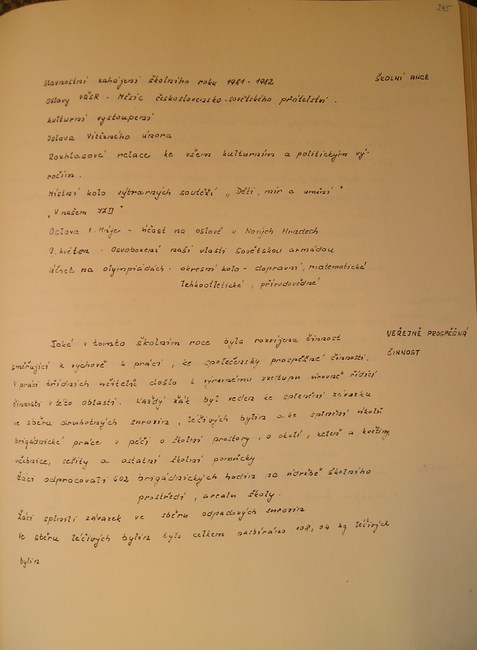 245
Slavnostní zahájení školního roku 1981-1982
ŠKOLNÍ AKCE
Oslavy VŘSR - Měsíc československo-sovětského přátelství.
Kulturní vystoupení
Oslava Vítězného února
Rozhlasové relace ke všem kulturním a politickým vý-
ročím.
Místní kolo výtvarných soutěží „Děti, mír a umění"
„V našem JZD"
Oslava 1. Máje - účast na oslavě v Nových Hradech
9. květen - Osvobození naší vlasti Sovětskou armádou
Účast na olympiádách - okresní kolo - dopravní, matematické
lehkoatletické, přírodovědné
VEŘEJNĚ PROSPĚŠNÁ
ČINNOST
Také v tomto školním roce byla rozvíjena činnost
směřující k výchově k práci, ke společensky prospěšné činnosti.
V práci třídních učitelů došlo k výraznému vzestupu úrovně řídící
činnosti v této oblasti. Každý žák byl veden ke splnění závazku
ve sběru druhotných surovin, léčivých bylin a ke splnění úkolů
brigádnické práce v péči o školní prostory, o okolí, zeleň a květiny,
učebnice, sešity a ostatní školní pomůcky
Žáci odpracovali 602 brigádnických hodin na údržbě školního
prostředí, areálu školy.
Žáci splnili závazek ve sběru odpadových surovin
Ve sběru léčivých bylin bylo celkem nasbíráno 108, 94 kg léčivých
bylin